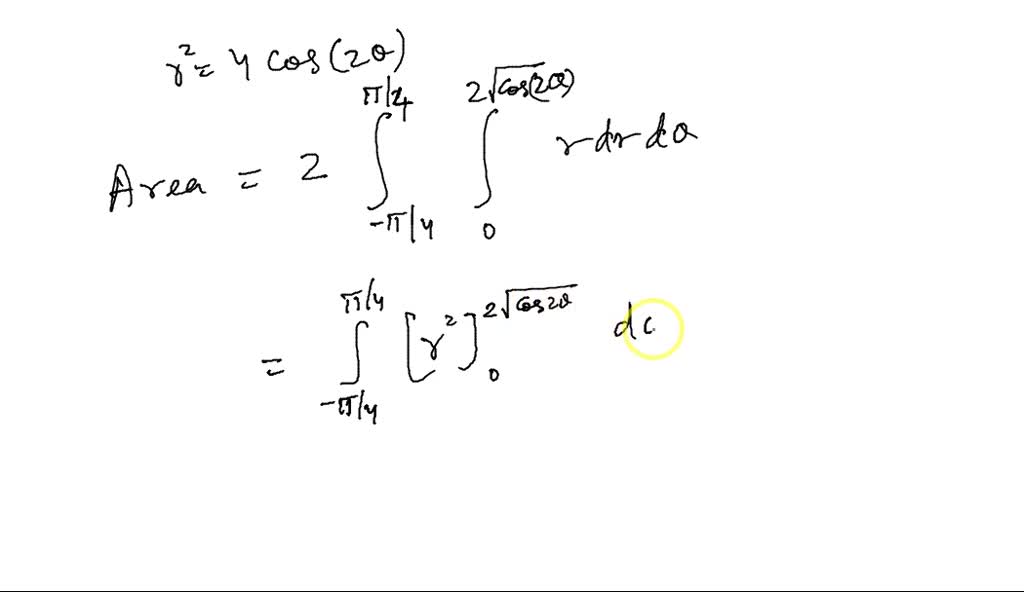 r² = 4 cos(2θ)
Area = 2 ∫_{-π/4}^{π/4} ∫_0^{2√cos(2θ)} r dr dθ
= ∫_{-π/4}^{π/4} [r²]_0^{2√cos2θ} d